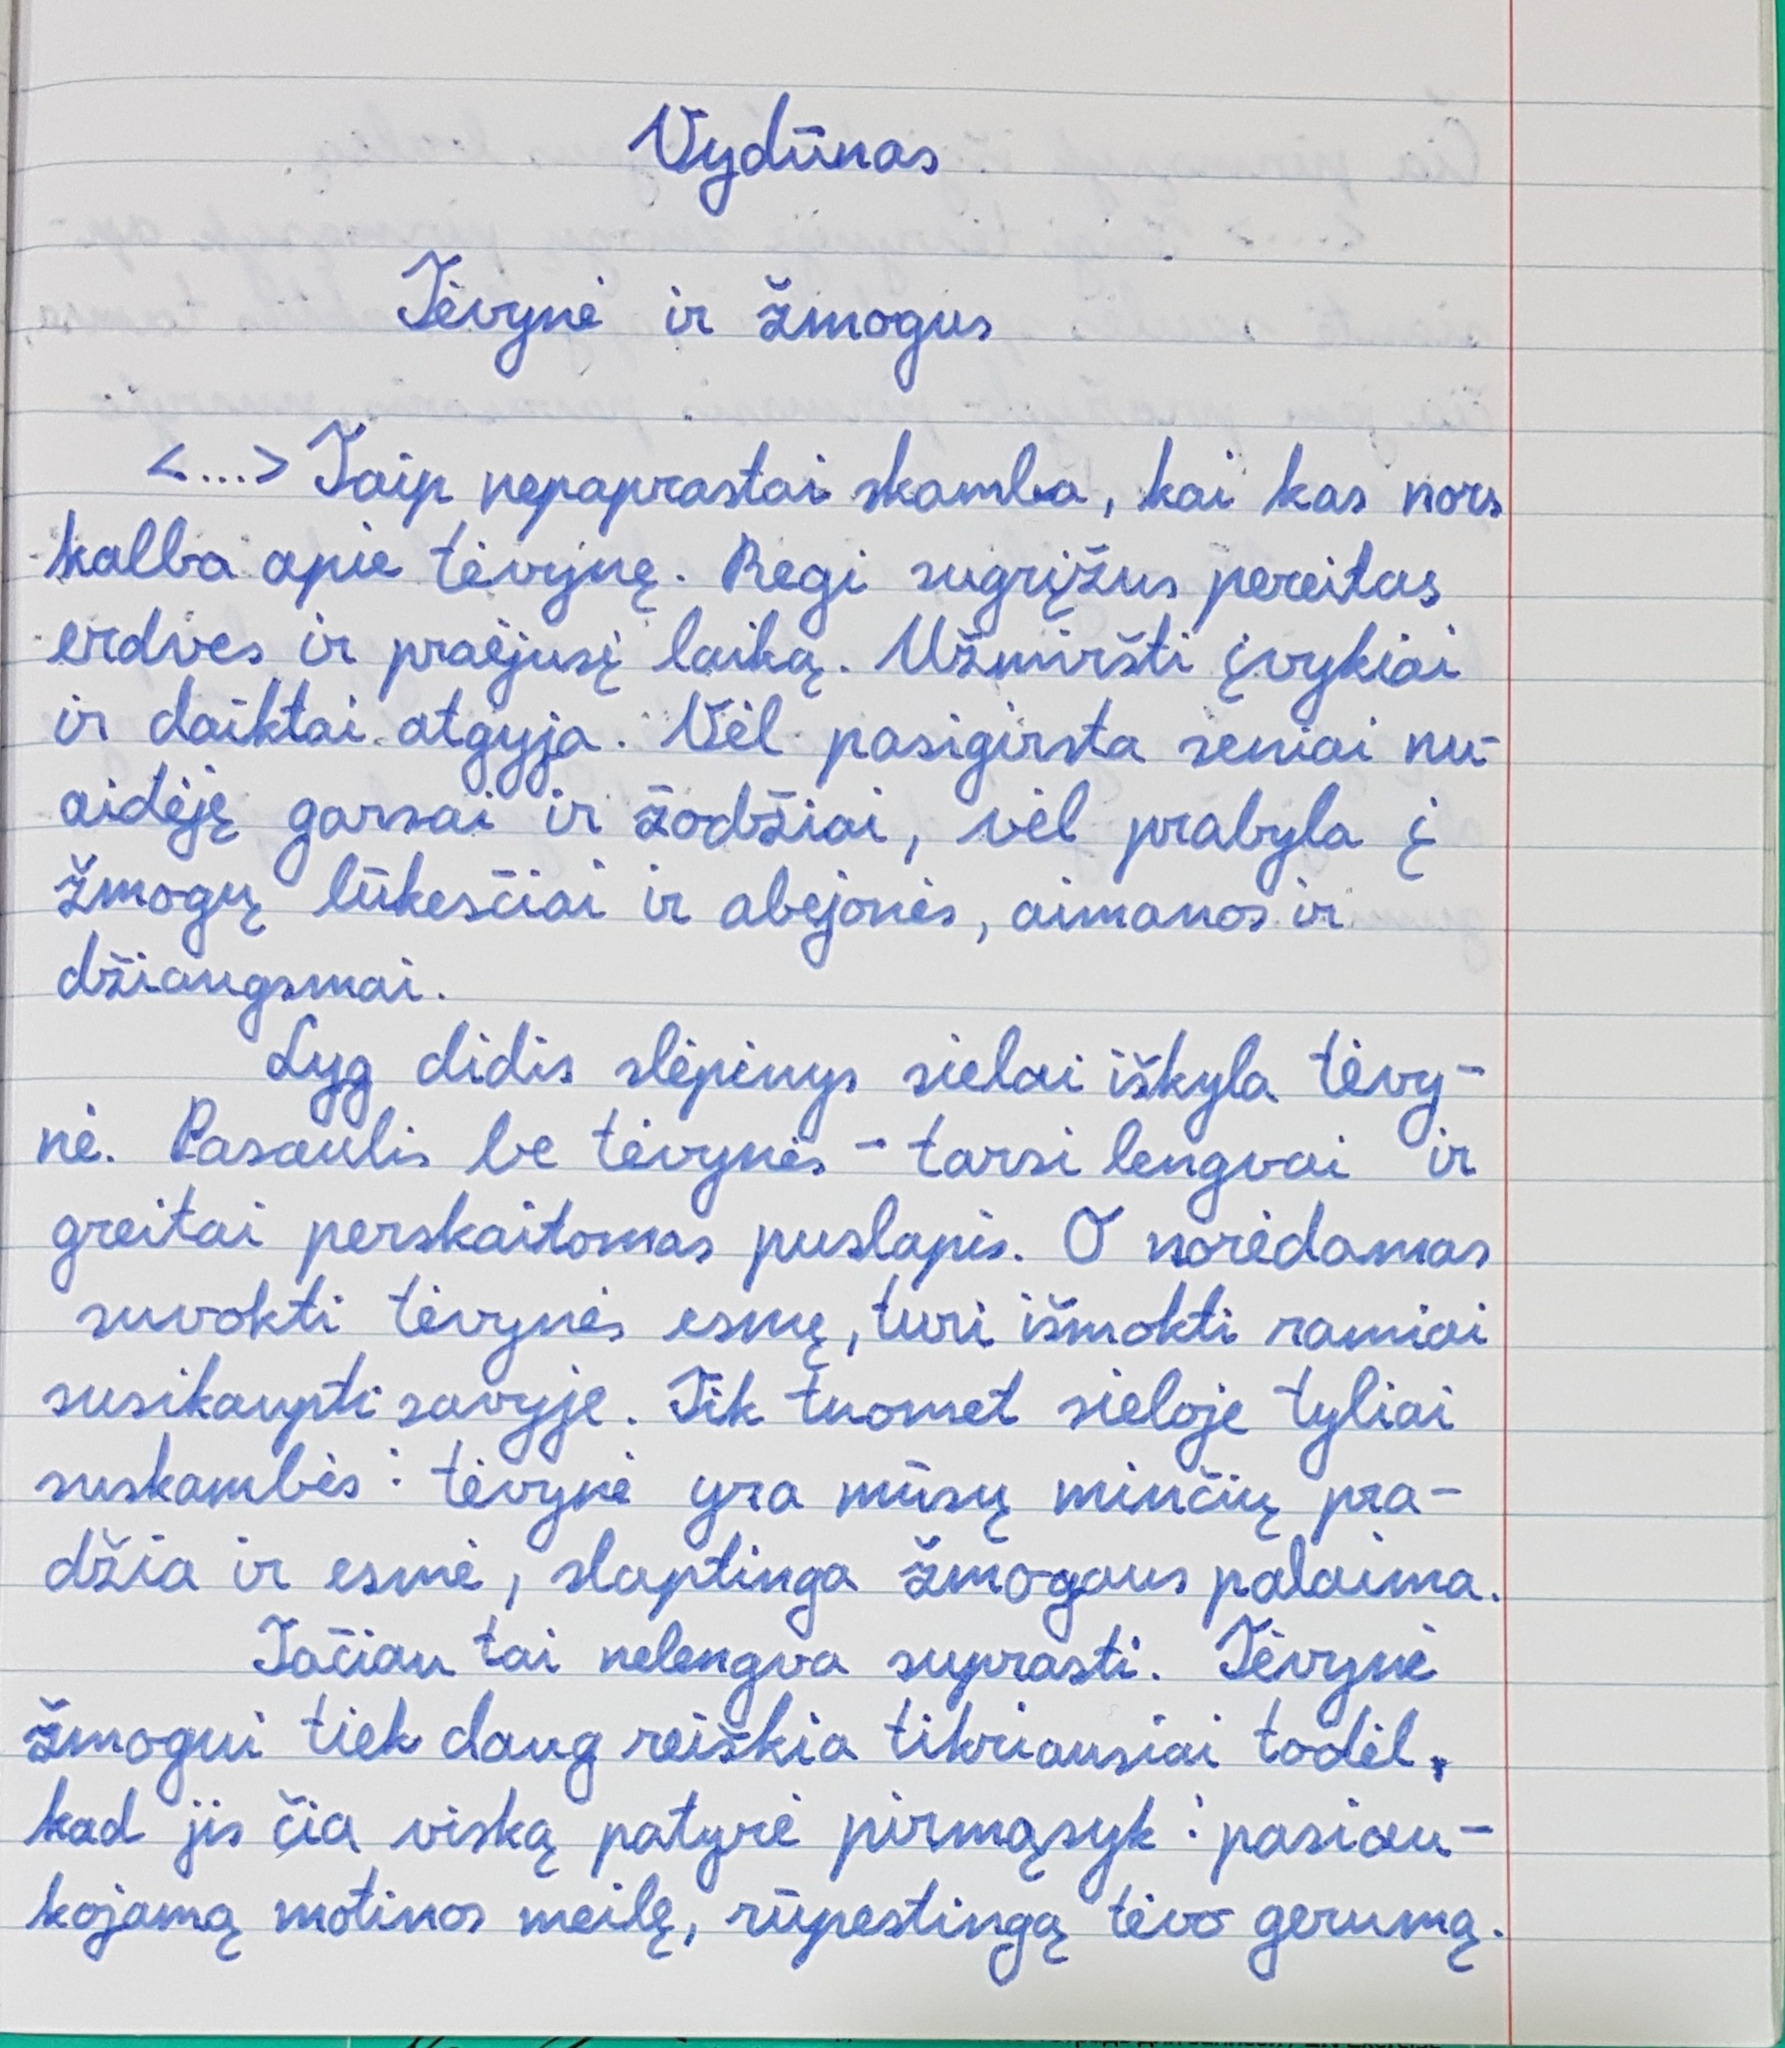 Vydūnas
Tėvynė ir žmogus
<...> Taip nepaprastai skamba, kai kas nors
kalba apie tėvynę. Regi sugrįžus pereitas
erdves ir praėjusį laiką. Užmiršti įvykiai
ir daiktai atgyja. Vėl pasigirsta seniai nu-
aidėję garsai ir žodžiai, vėl prabyla į
žmogų lūkesčiai ir abejonės, aimanos ir
džiaugsmai.
Lyg didis slėpinys sielai iškyla tėvy-
nė. Pasaulis be tėvynės - tarsi lengvai ir
greitai perskaitomas puslapis. O norėdamas
suvokti tėvynės esmę, turi išmokti ramiai
susikaupti savyje. Tik tuomet sieloje tyliai
suskambės: tėvynė yra mūsų minčių pra-
džia ir esmė, slaptinga žmogaus palaima.
Tačiau tai nelengva suprasti. Tėvynė
žmogui tiek daug reiškia tikriausiai todėl,
kad jis čia viską patyrė pirmąsyk: pasiau-
kojamą motinos meilę, rūpestingą tėvo gerumą.